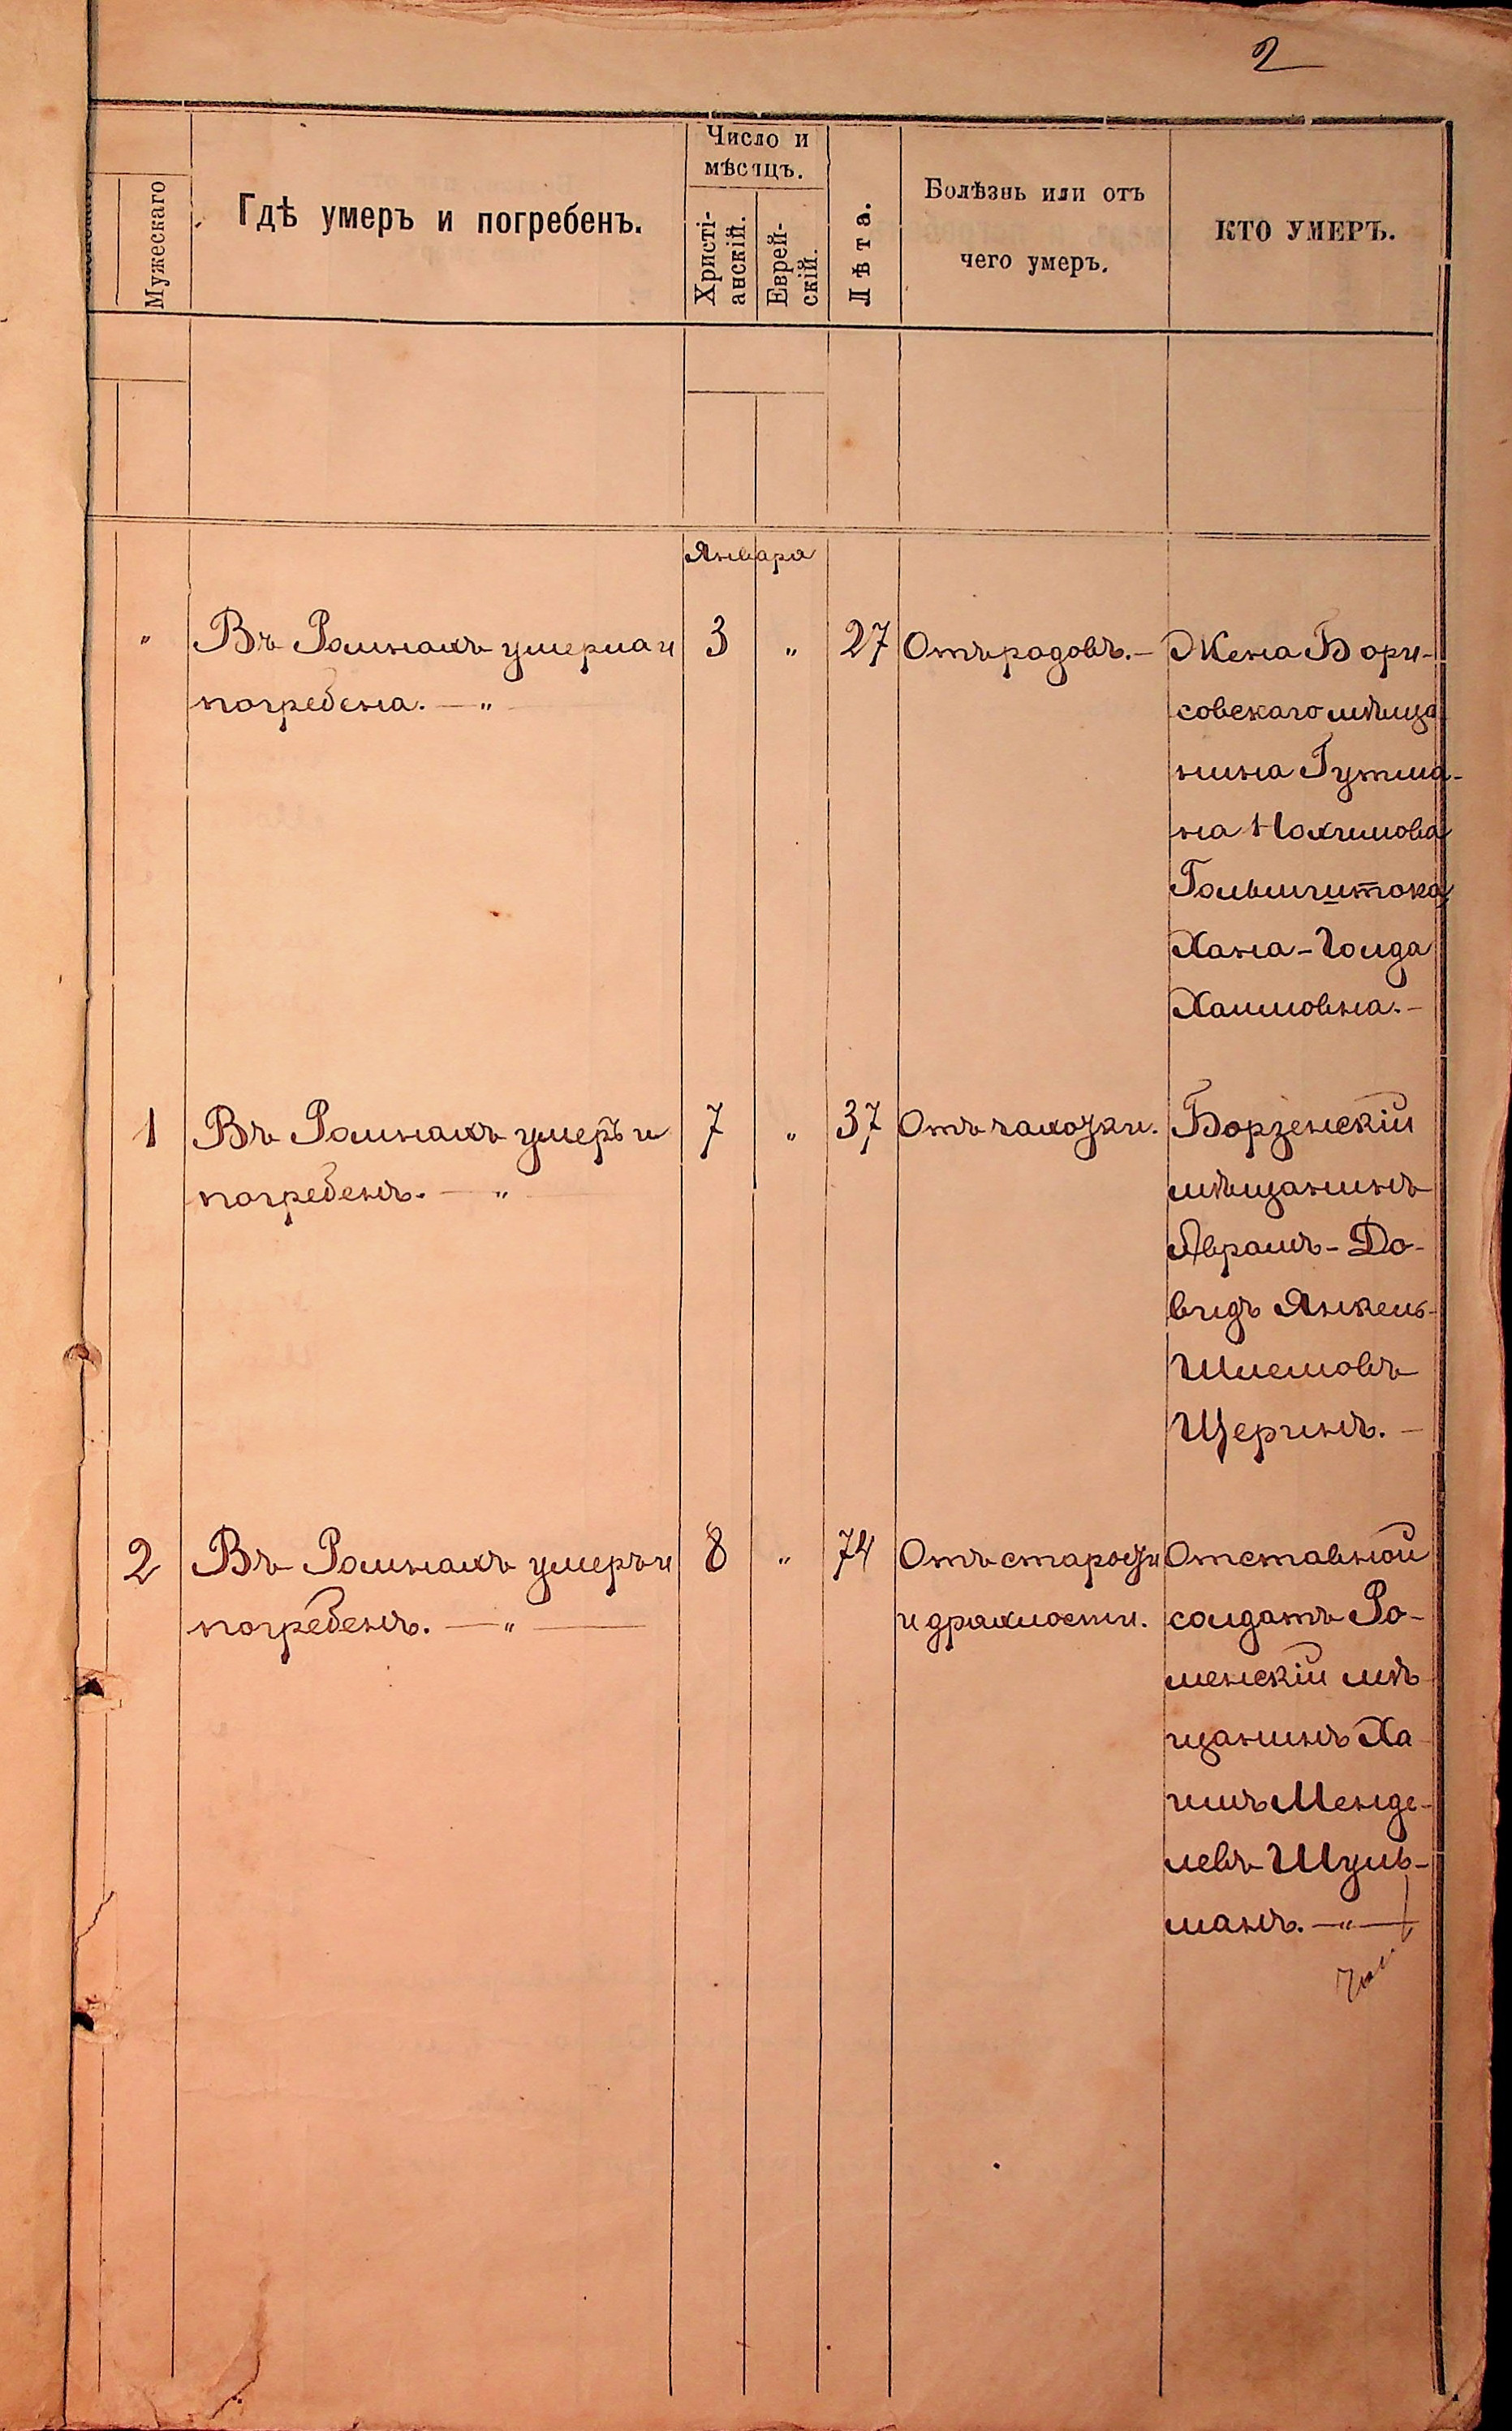 2
Мужескаго
Гдѣ умеръ и погребенъ.
Число и
мѣсяцъ.
Христі-
анскій.
Еврей-
скій.
Лѣта.
Болѣзнь или отъ
чего умеръ.
КТО УМЕРЪ.
Января
" Въ Ромнахъ умерла и 3 " 27 Отъ родовъ.— Жена Бори-
погребена. — " — совскаго мѣща
нина Гутма-
на Нохимова
Гольдштока
Хана-Голда
Хаимовна.—
1 Въ Ромнахъ умеръ и 7 " 37 Отъ чахотки. Борзенскій
погребенъ. — " — мѣщанинъ
Аврамъ-До-
видъ Янкель-
Шлемовъ
Щеринъ. —
2 Въ Ромнахъ умеръ и 8 " 74 Отъ старости Отставной
погребенъ. — " — и дряхлости. солдатъ Ро-
менскій мѣ
щанинъ Ха
имъ Менде-
левъ Шуль-
манъ. — " —